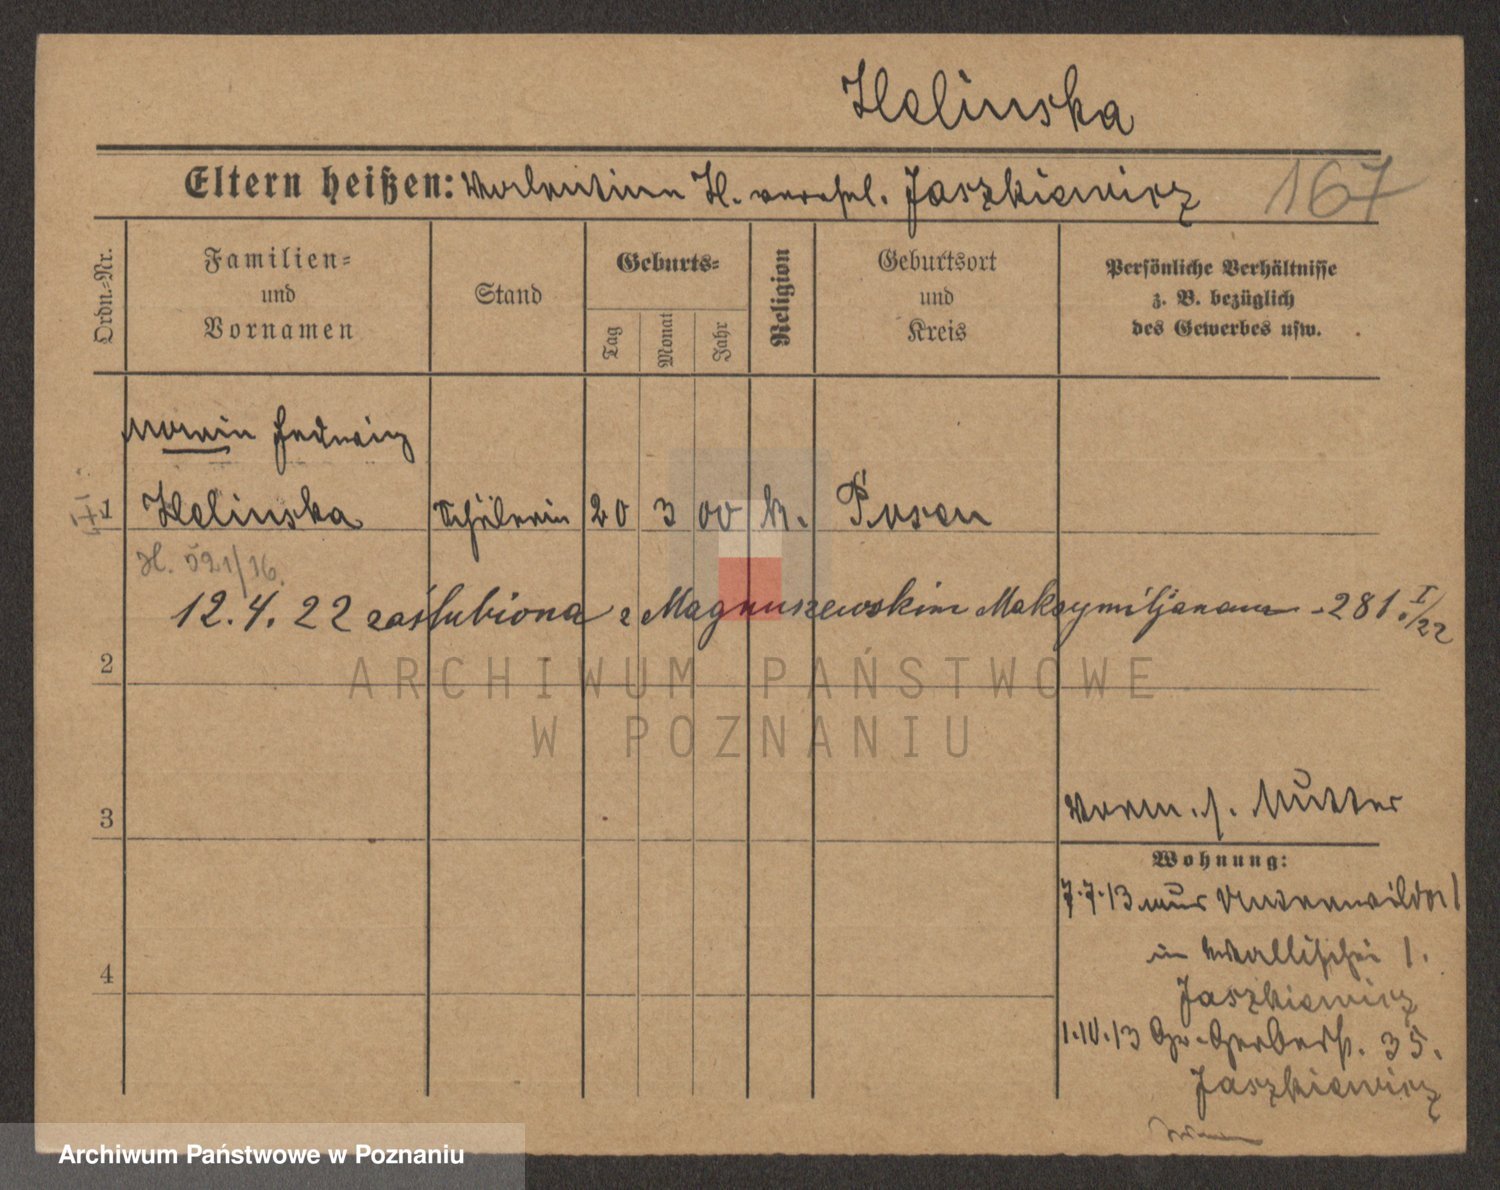 Helinska
Eltern heißen: Valentina H. verehel. Jaszkiewicz 167
Ordn.-Nr.
Familien-
und
Vornamen
Stand
Geburts-
Tag
Monat
Jahr
Religion
Geburtsort
und
Kreis
Persönliche Verhältnisse
z. B. bezüglich
des Gewerbes usw.
Maria Hedwig
1 Helinska Schülerin 20 3 00 k. Posen
H. 521/16.
12.4.22 zaślubiona z Magnuszewskim Maksymiljanem - 281 I/22
2
ARCHIWUM PAŃSTWOWE
W POZNANIU
3
Vorm. s. Mutter
Wohnung:
7.7.13 aus Unterwilda 1
in Wallischei 1.
Jaszkiewicz
4
1.10.13 Gr. Gerberstr. 35.
Jaszkiewicz
Archiwum Państwowe w Poznaniu